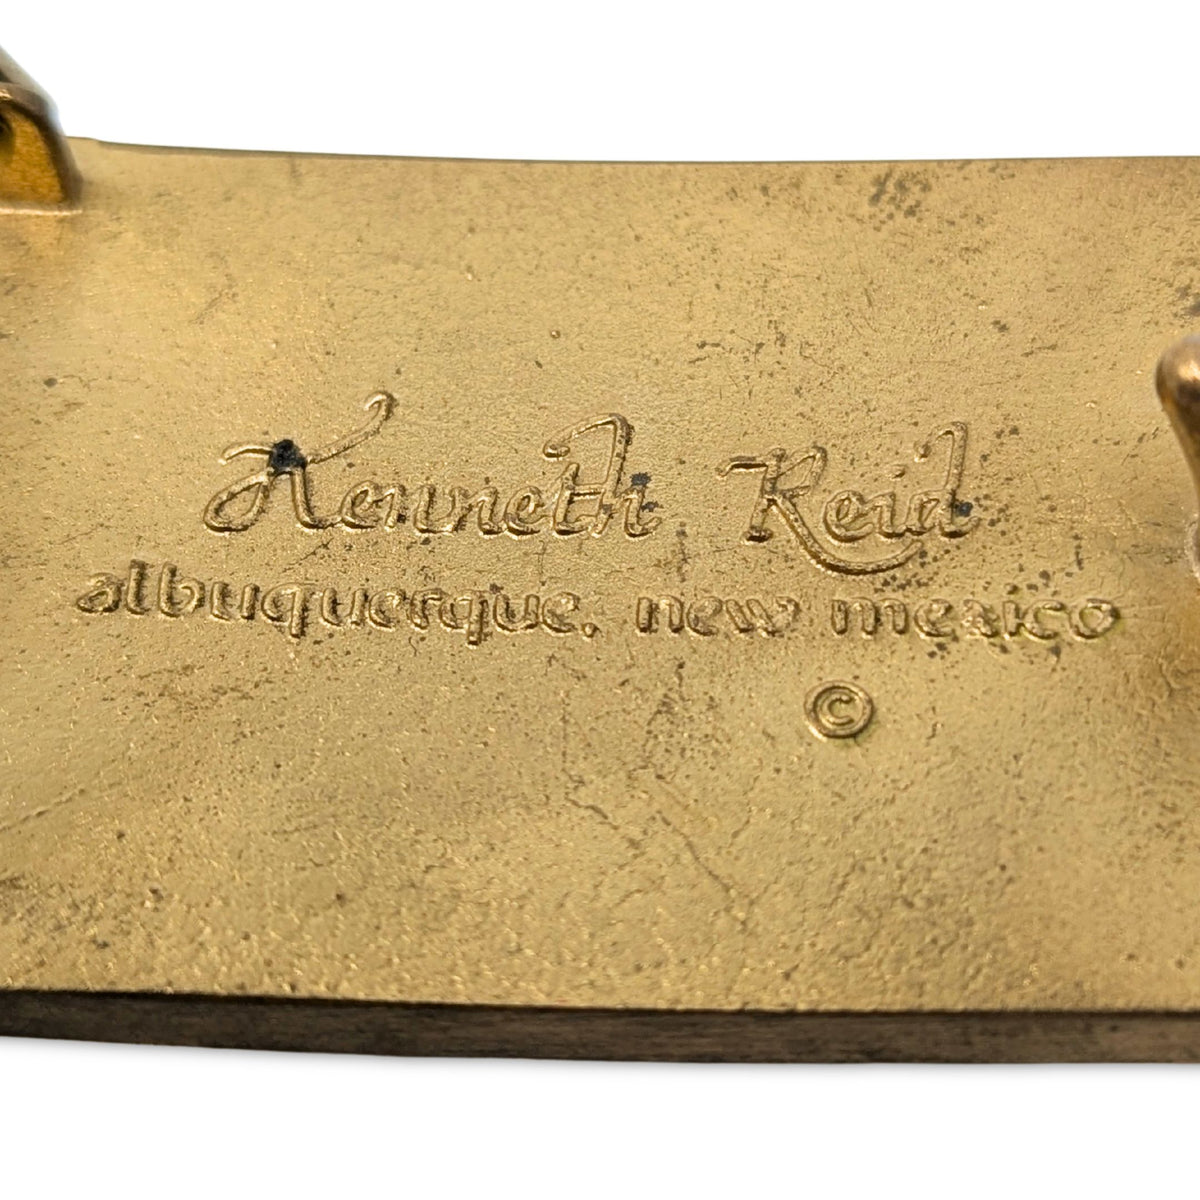 Kenneth Reid
albuquerque, new mexico
©